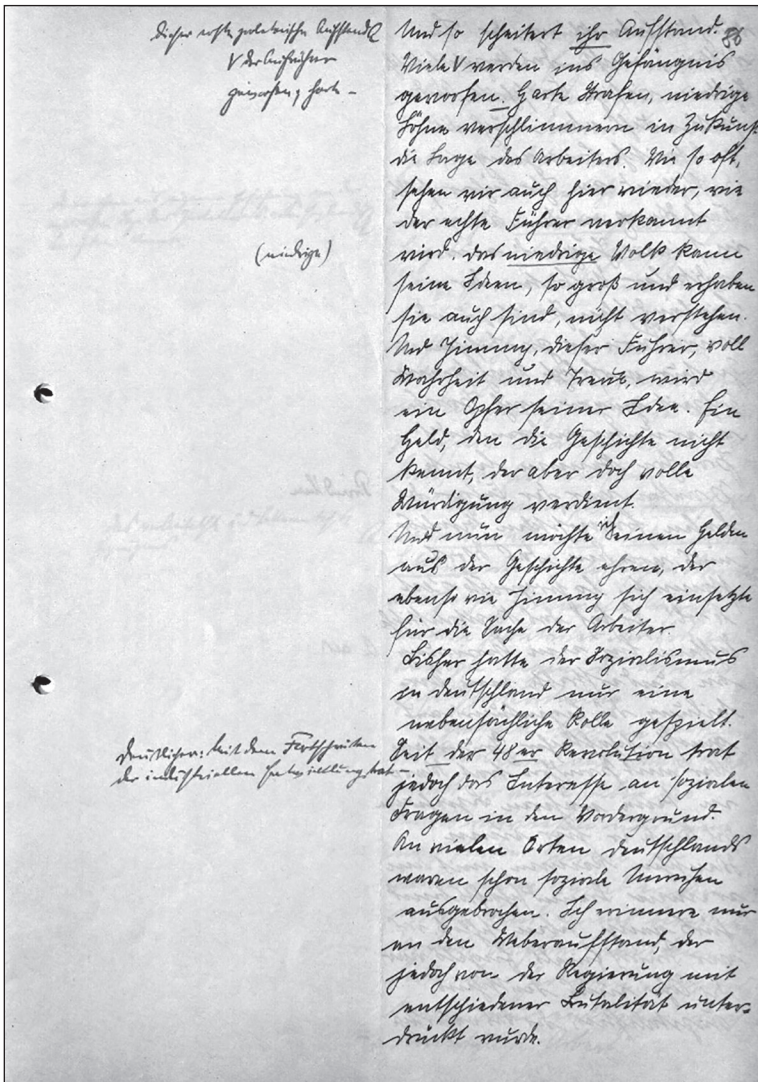 Dieser erste proletarische Aufstand
V der Aufrührer
geworfen, harte –
(niedrige)
Deutlicher: Mit dem Fortschreiten
der industriellen Entwicklung trat –
86
Und so scheitert ihr Aufstand.
Viele V werden ins Gefängnis
geworfen. Harte Strafen, niedrige
Löhne verschlimmern in Zukunft
die Lage des Arbeiters. Wie so oft,
sehen wir auch hier wieder, wie
der echte Führer verkannt
wird. Das niedrige Volk kann
seine Ideen, so groß und erhaben
sie auch sind, nicht verstehen.
Und Jimmy, dieser Führer, voll
Wahrheit und Treue, wird
ein Opfer seiner Idee. Ein
Held, den die Geschichte nicht
kennt, der aber doch volle
Würdigung verdient.
Und nun möchte ich einen Helden
aus der Geschichte ehren, der
ebenso wie Jimmy sich einsetzte
für die Sache der Arbeiter.
Bisher hatte der Sozialismus
in Deutschland nur eine
nebensächliche Rolle gespielt.
Seit der 48er Revolution trat
jedoch das Interesse an sozialen
Fragen in den Vordergrund.
An vielen Orten Deutschlands
waren schon soziale Unruhen
ausgebrochen. Ich erinnere nur
an den Weberaufstand, der
jedoch von der Regierung mit
entschiedener Brutalität unter-
drückt wurde.